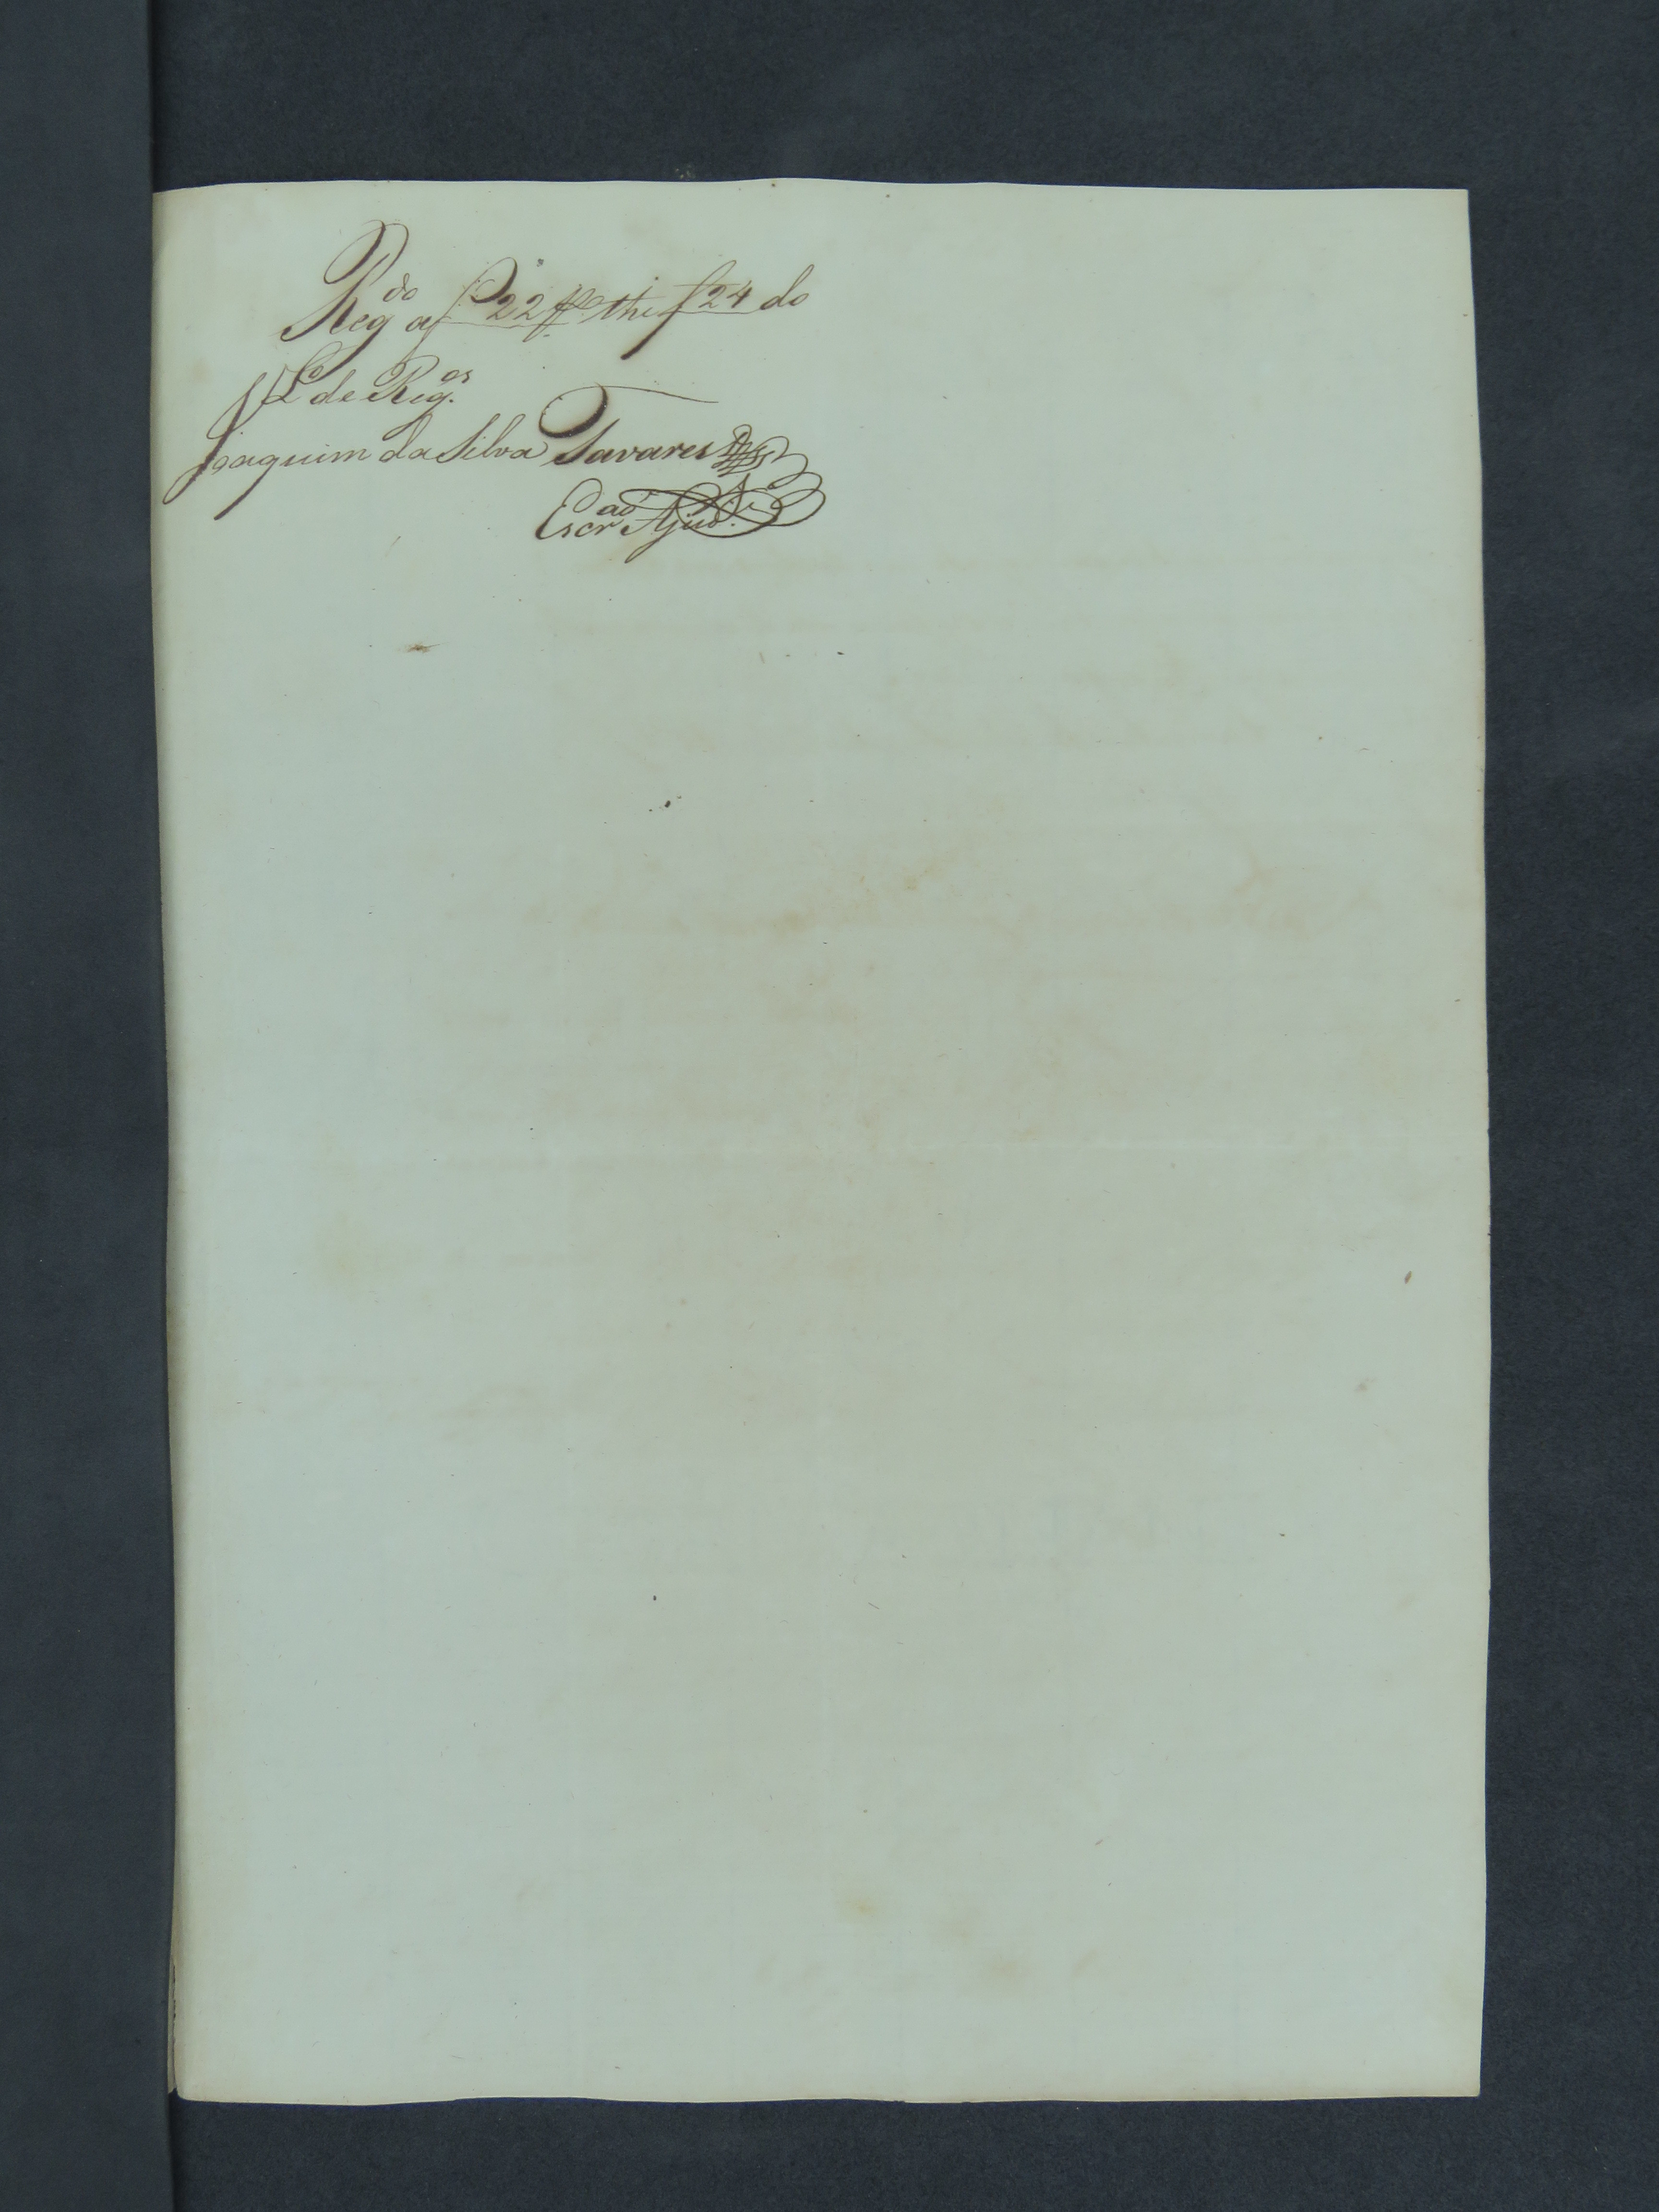 Reg.do a f 22 the f 24 do
L.o de Reg.os
Joaquim da Silva Tavares
Escr.ão Ajud.e